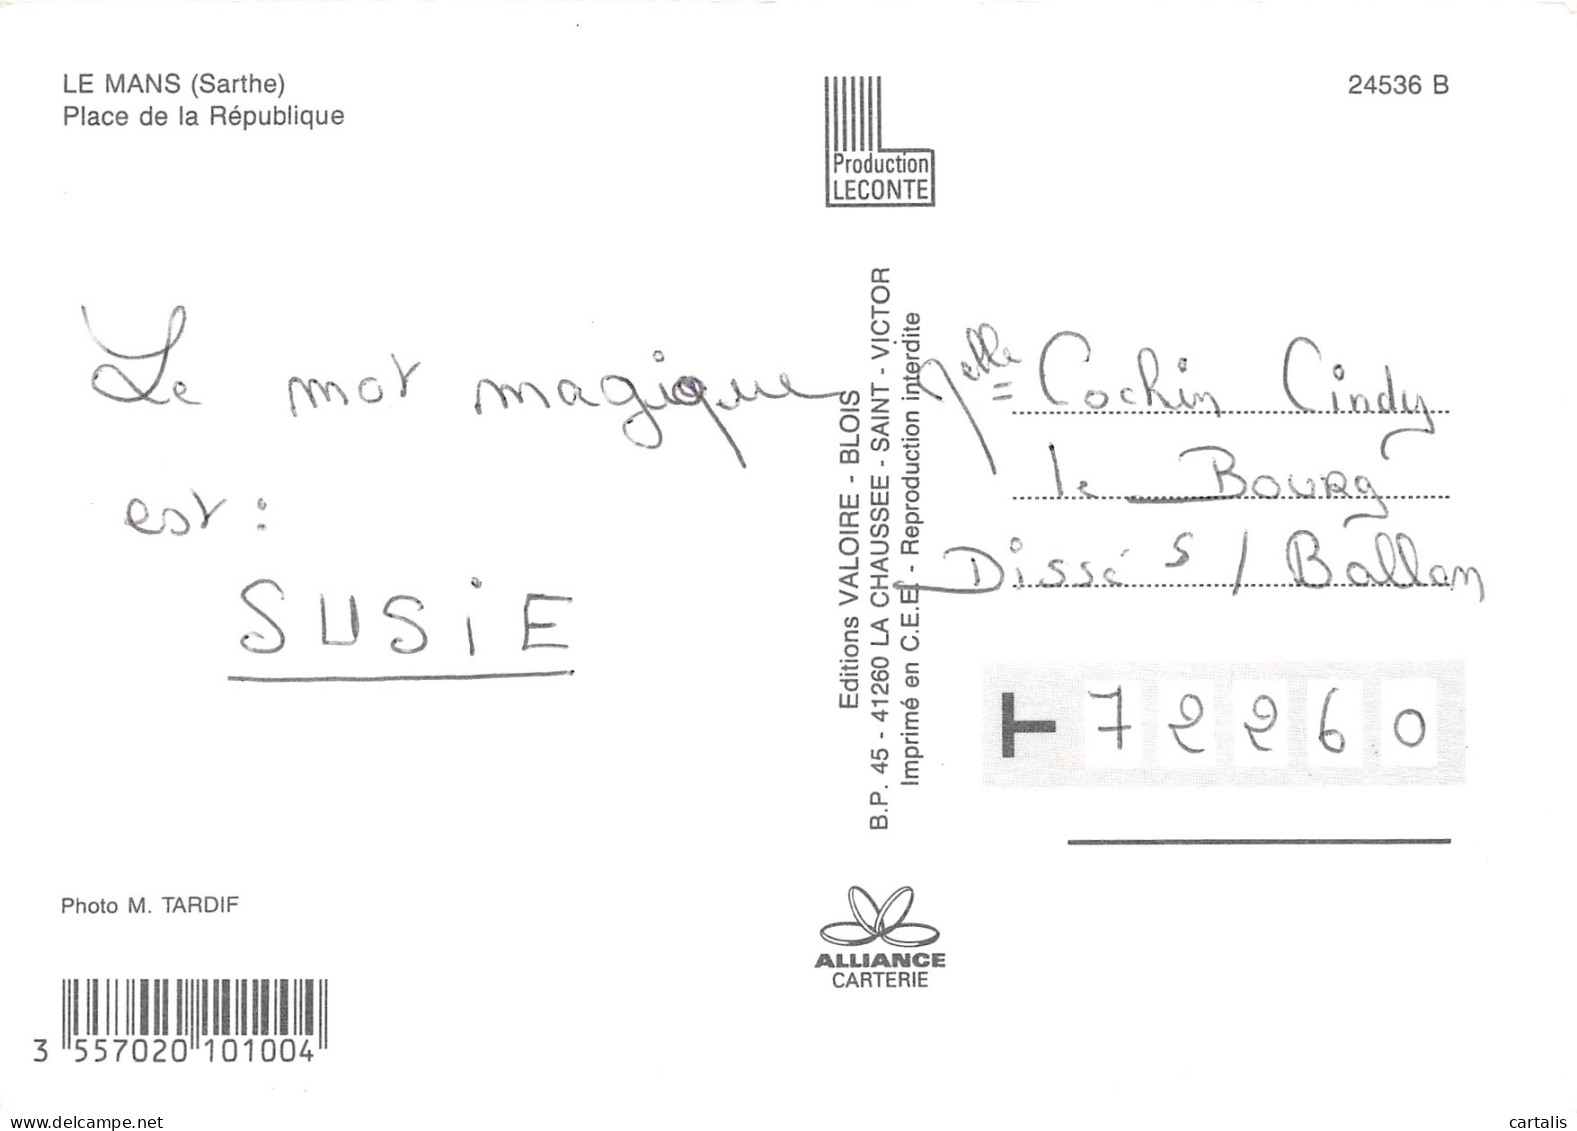 LE MANS (Sarthe)
Place de la République
24536 B
Production
LECONTE
Le mot magique
est :
SUSiE
Editions VALOIRE - BLOIS
B.P. 45 - 41260 LA CHAUSSEE - SAINT - VICTOR
Imprimé en C.E.E. - Reproduction interdite
Melle Cochin Cindy
le Bourg
Dissé s/ Ballan
72260
Photo M. TARDIF
ALLIANCE
CARTERIE
3 557020 101004
www.delcampe.net
cartalis